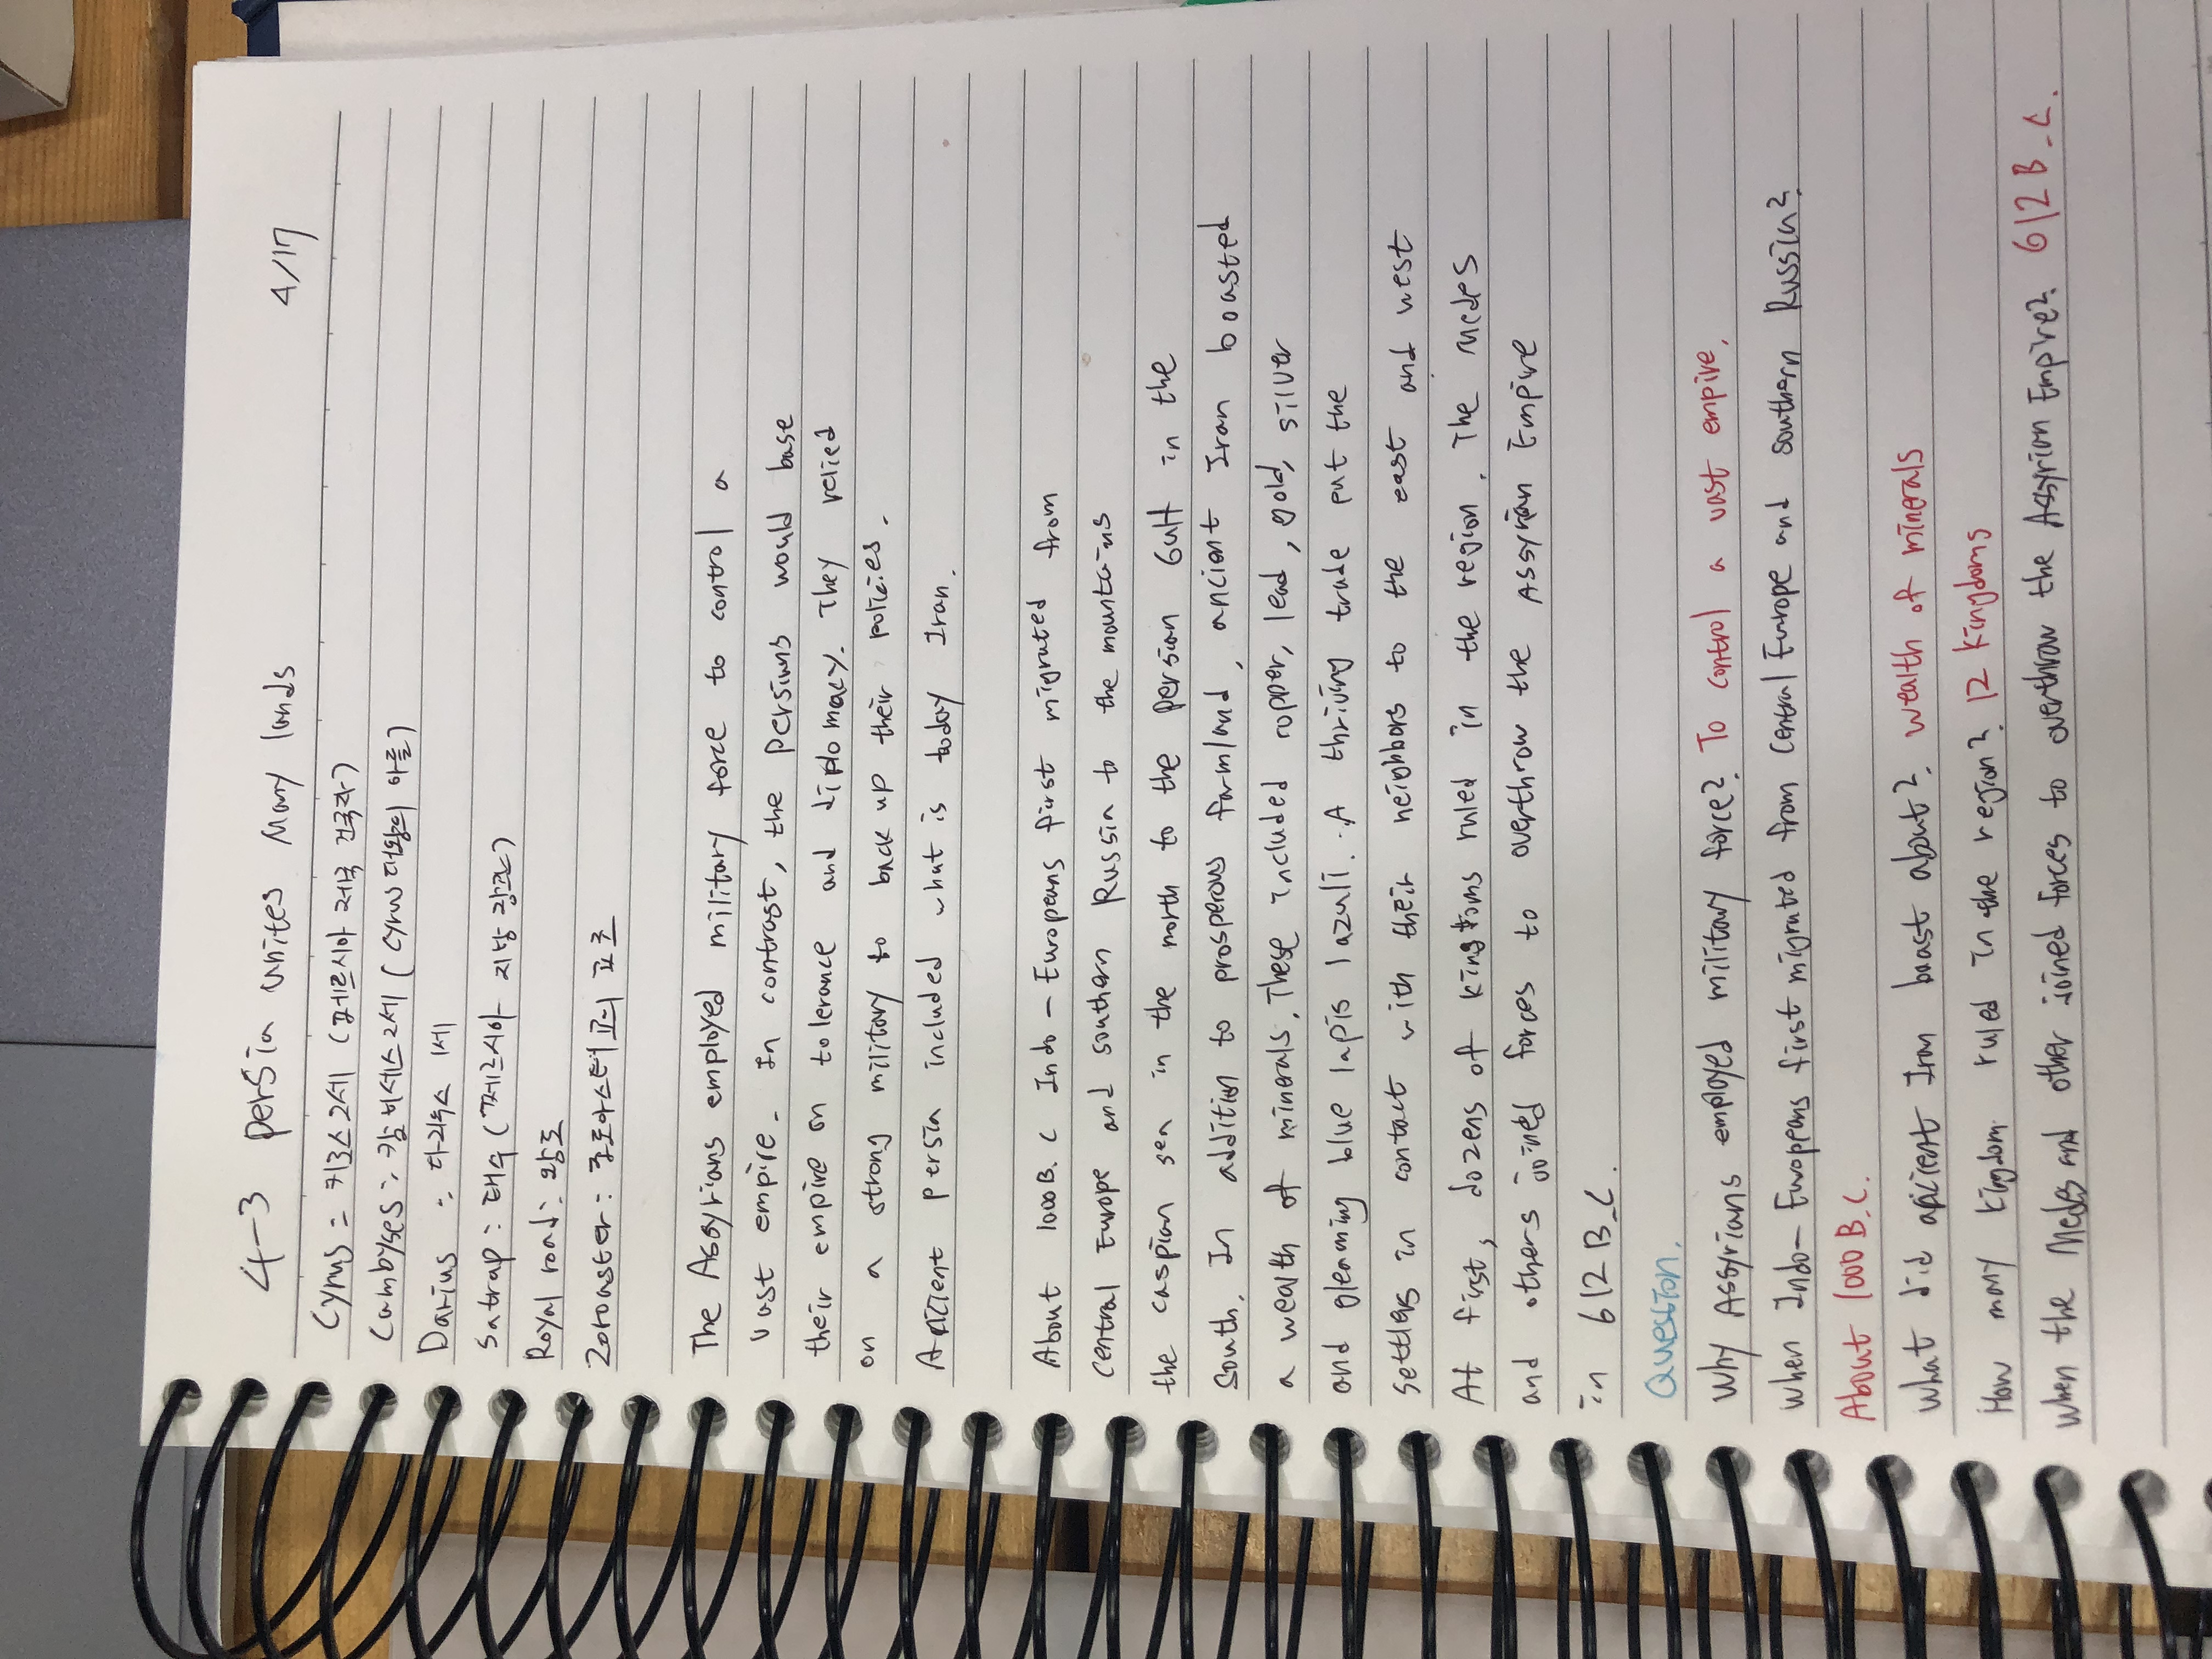 4-3 persia unites Many lands 4/17
Cyrus = 키로스 2세 (페르시아 제국 건국자)
Cambyses : 캄비세스 2세 (Cyrus 대왕의 아들)
Darius : 다리우스 1세
Satrap : 태수 (페르시아 지방 장관)
Royal road : 왕도
Zoroaster : 조로아스터교의 교조
The Assyrians employed military force to control a
vast empire. In contrast, the Persians would base
their empire on tolerance and diplomacy. They relied
on a strong military to back up their policies.
Ancient persia included what is today Iran.
About 1000 B.C Indo-Europeans first migrated from
Central Europe and southern Russia to the mountains
the caspian sea in the north to the persian Gulf in the
South. In addition to prosperous farmland, ancient Iran boasted
a wealth of minerals. These included copper, lead, gold, silver
and gleaming blue lapis lazuli. A thriving trade put the
settlers in contact with their neighbors to the east and west
At first, dozens of kingdoms ruled in the region. The Medes
and others joined forces to overthrow the Assyrian Empire
in 612 B.C.
Question.
Why Assyrians employed military force? To control a vast empire.
When Indo-Europeans first migrated from Central Europe and southern Russia?
About 1000 B.C.
What did ancient Iran boast about? wealth of minerals
How many kingdom ruled in the region? 12 kingdoms
When the Medes and other joined forces to overthrow the Assyrion Empire? 612 B.C.